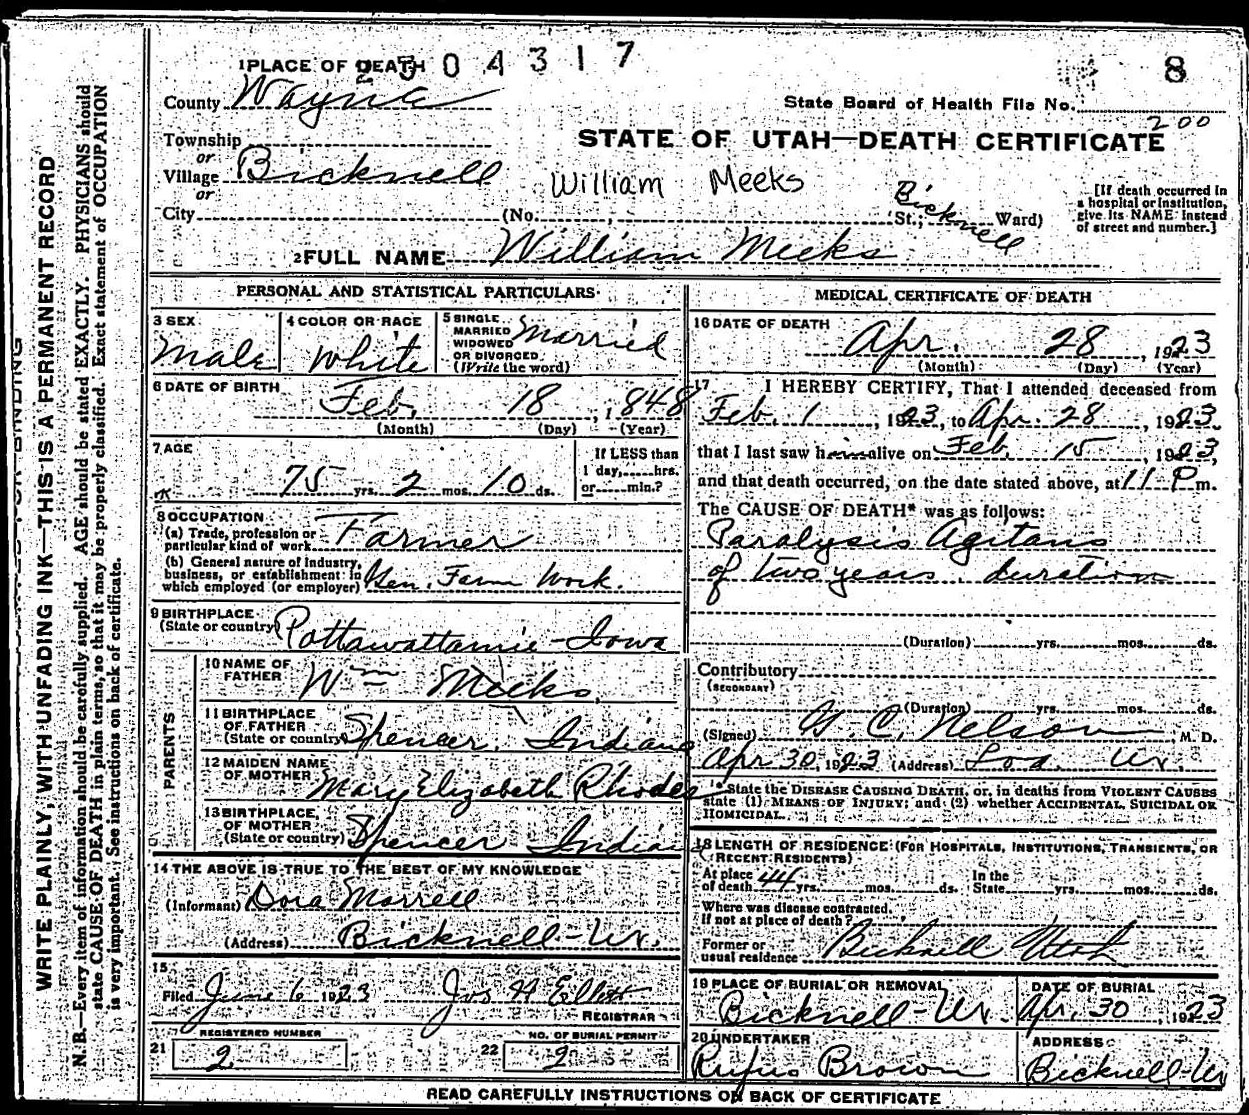 2304317
8
1 PLACE OF DEATH
County Wayne
State Board of Health File No.
200
Township
STATE OF UTAH—DEATH CERTIFICATE
or
Village Bicknell
William Meeks
or
City (No. , St.; Bicknell Ward)
[If death occurred in a hospital or institution, give its NAME instead of street and number.]
2 FULL NAME William Meeks
PERSONAL AND STATISTICAL PARTICULARS
3 SEX Male
4 COLOR OR RACE White
5 SINGLE MARRIED WIDOWED OR DIVORCED (Write the word) Married
6 DATE OF BIRTH
Feb. 18, 1848
(Month) (Day) (Year)
7 AGE
75 yrs. 2 mos. 10 ds.
If LESS than 1 day, hrs. or min.?
8 OCCUPATION
(a) Trade, profession or particular kind of work Farmer
(b) General nature of industry, business, or establishment in which employed (or employer) Gen. Farm Work.
9 BIRTHPLACE (State or country) Pottawattamie-Iowa
PARENTS
10 NAME OF FATHER Wm Meeks
11 BIRTHPLACE OF FATHER (State or country) Spencer, Indiana
12 MAIDEN NAME OF MOTHER Mary Elizabeth Rhodes
13 BIRTHPLACE OF MOTHER (State or country) Spencer Indiana
14 THE ABOVE IS TRUE TO THE BEST OF MY KNOWLEDGE
(Informant) Dora Morrell
(Address) Bicknell-Ut.
15
Filed June 6 1923 Jos H Ellett
REGISTRAR
21 REGISTERED NUMBER 2
22 NO. OF BURIAL PERMIT 2
MEDICAL CERTIFICATE OF DEATH
16 DATE OF DEATH
Apr. 28, 1923
(Month) (Day) (Year)
17 I HEREBY CERTIFY, That I attended deceased from
Feb. 1, 1923, to Apr. 28, 1923,
that I last saw him alive on Feb 15, 1923,
and that death occurred, on the date stated above, at 11 P m.
The CAUSE OF DEATH* was as follows:
Paralysis Agitans
of two years duration
(Duration) yrs. mos. ds.
Contributory
(SECONDARY)
(Duration) yrs. mos. ds.
(Signed) G. C. Nelson, M. D.
Apr 30, 1923 (Address) Loa. Ut.
*State the DISEASE CAUSING DEATH, or, in deaths from VIOLENT CAUSES
state (1) MEANS OF INJURY; and (2) whether ACCIDENTAL, SUICIDAL OR
HOMICIDAL.
18 LENGTH OF RESIDENCE (FOR HOSPITALS, INSTITUTIONS, TRANSIENTS, OR
RECENT RESIDENTS)
At place of death 44 yrs. mos. ds. In the State yrs. mos. ds.
Where was disease contracted.
If not at place of death?
Former or usual residence Bicknell Utah
19 PLACE OF BURIAL OR REMOVAL Bicknell-Ut.
DATE OF BURIAL Apr. 30, 1923
20 UNDERTAKER Rufus Brown
ADDRESS Bicknell-Ut
READ CAREFULLY INSTRUCTIONS ON BACK OF CERTIFICATE
WRITE PLAINLY, WITH UNFADING INK—THIS IS A PERMANENT RECORD
N. B.—Every item of information should be carefully supplied. AGE should be stated EXACTLY. PHYSICIANS should
state CAUSE OF DEATH in plain terms, so that it may be properly classified. Exact statement of OCCUPATION
is very important. See instructions on back of certificate.